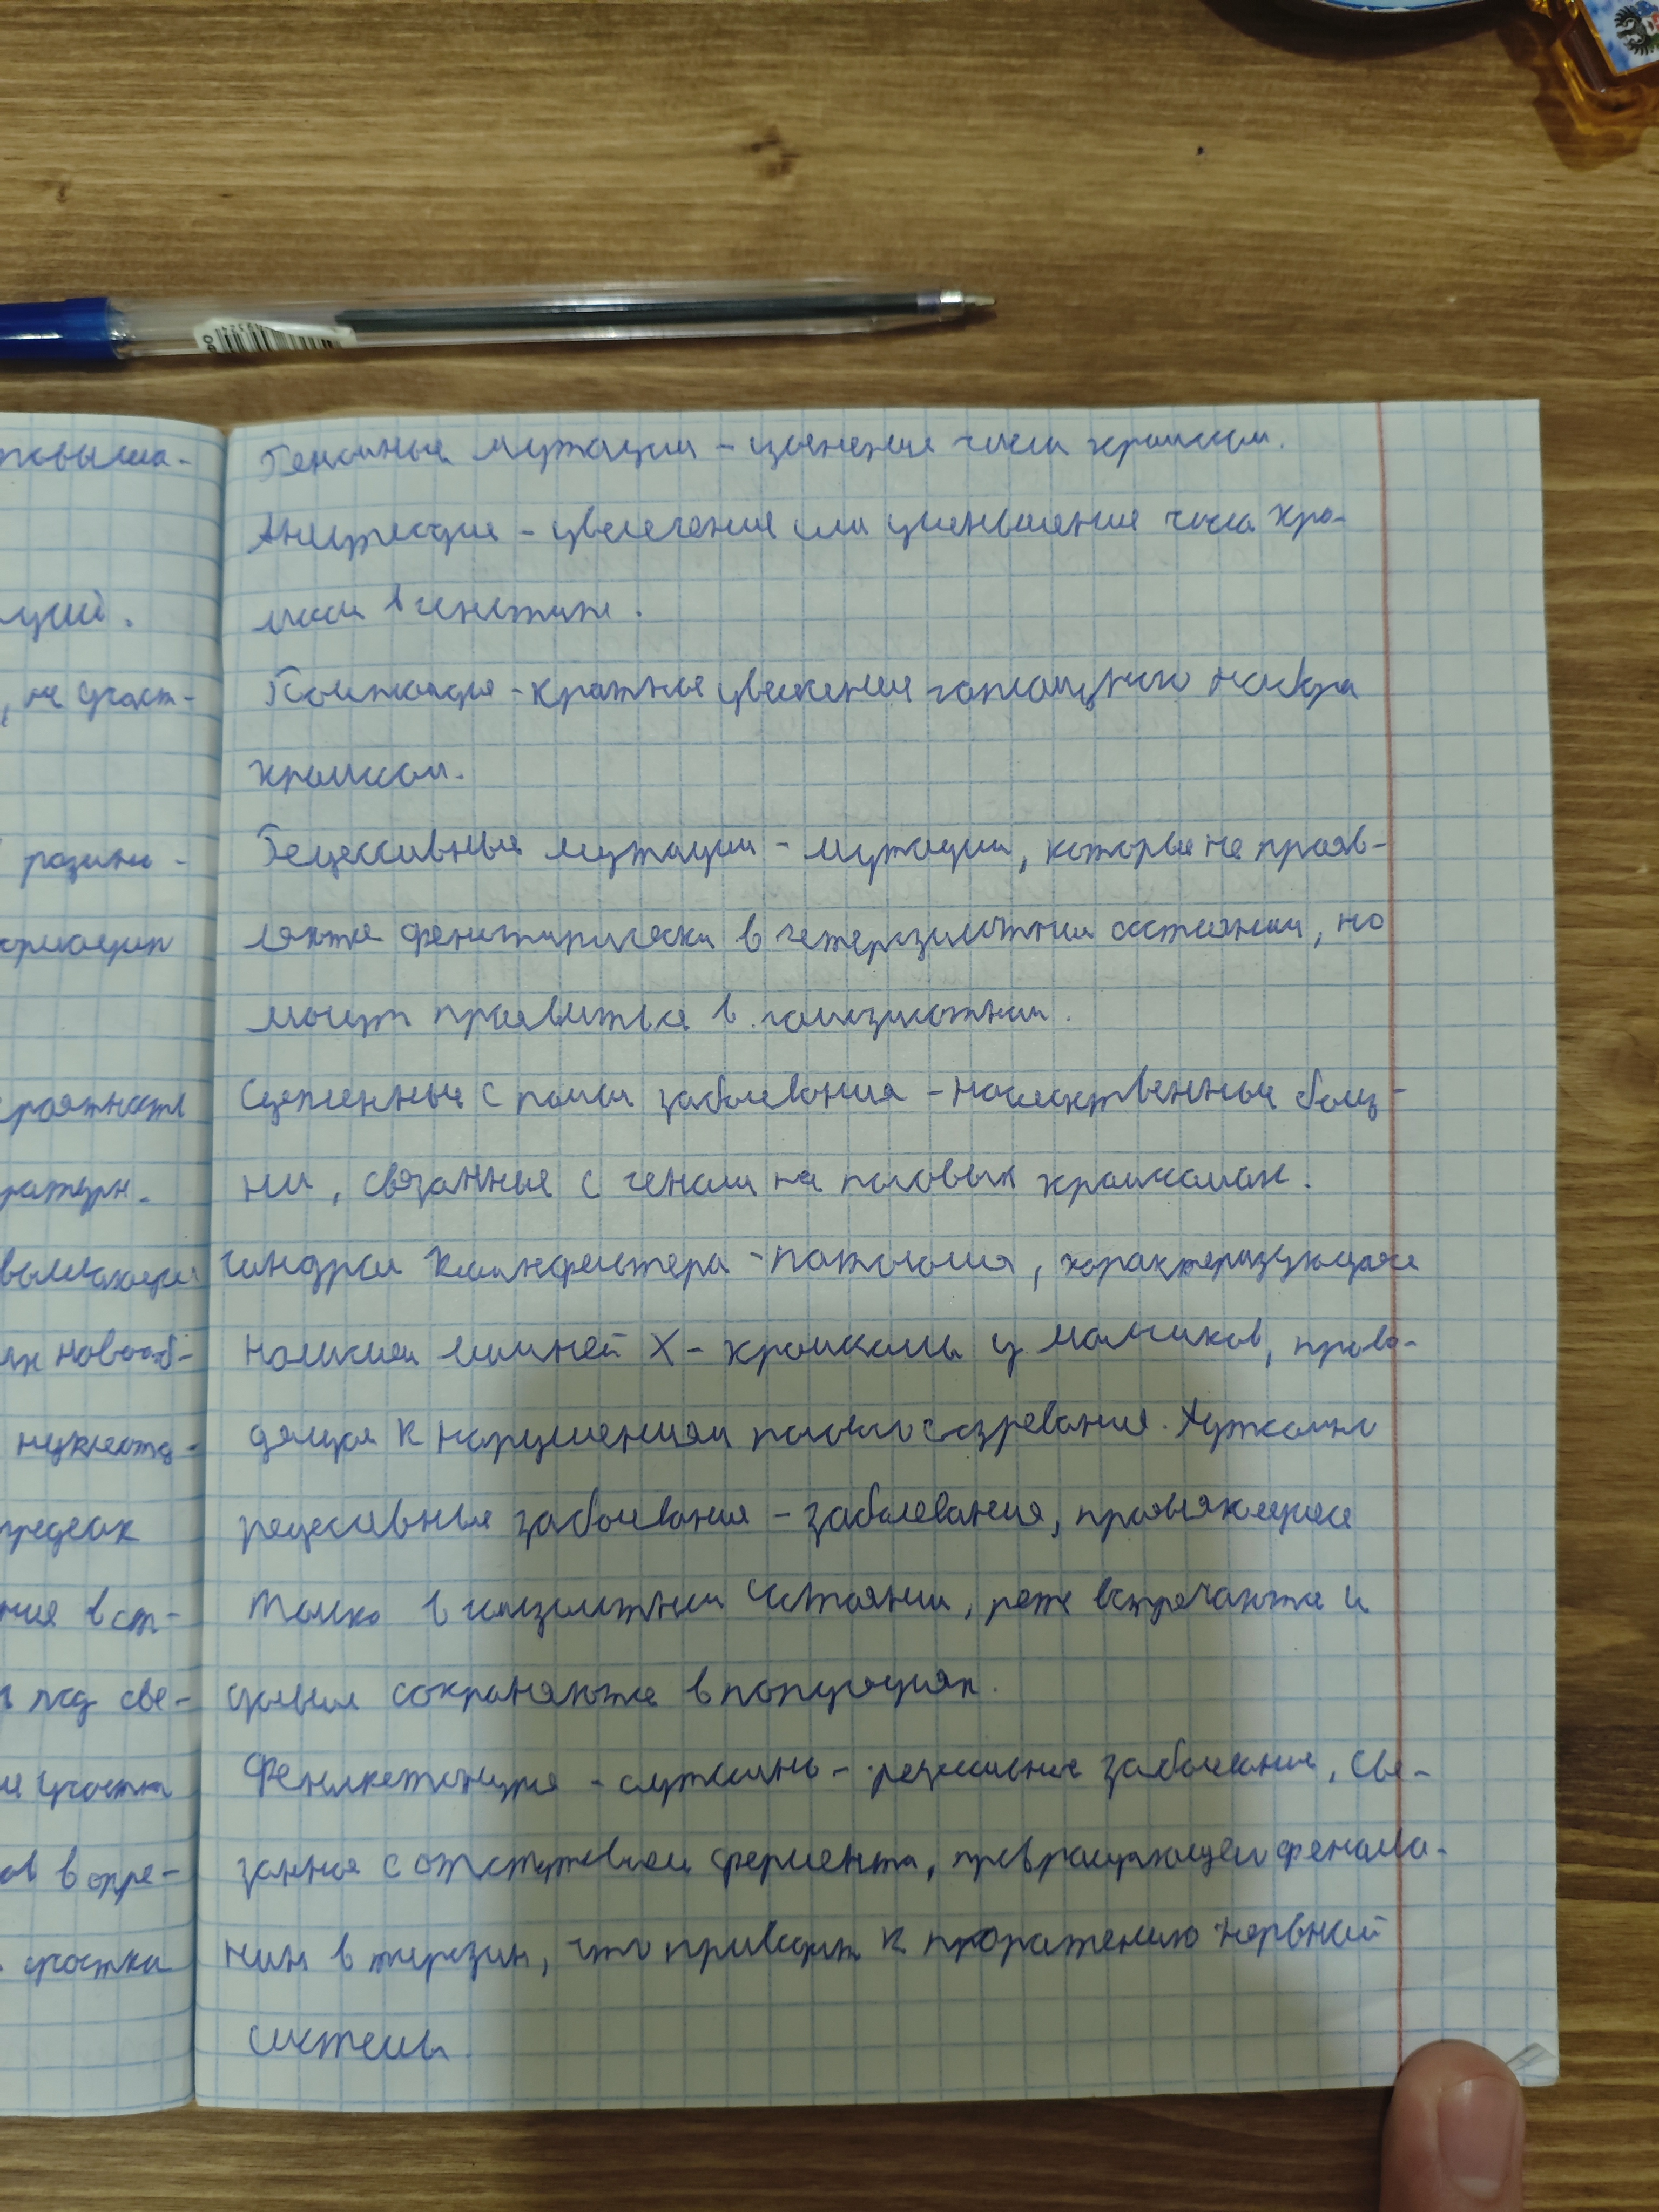 Геномные мутации - изменение числа хромосом.
Анеуплоидия - увеличение или уменьшение числа хро-
мосом в генотипе.
Полиплоидия - кратное увеличение гаплоидного набора
хромосом.
Рецессивные мутации - мутации, которые не прояв-
ляются фенотипически в гетерозиготном состоянии, но
могут проявиться в гомозиготном.
Сцепленные с полом заболевания - наследственные болез-
ни, связанные с генами на половых хромосомах.
синдром Клайнфельтера - патология, характеризующаяся
наличием лишней X - хромосомы у мальчиков, приво-
дящая к нарушениям полового созревания. Аутосомно
рецессивные заболевания - заболевания, проявляющиеся
только в гомозиготном состоянии, реже встречаются и
сохраняются в популяциях.
Фенилкетонурия - аутосомно - рецессивное заболевание, свя-
занное с отсутствием фермента, превращающего фенилала-
нин в тирозин, что приводит к поражению нервной
системы
повыша-
ций.
, не участ-
нуклеоти-
пределах
под све-
в опре-
участки